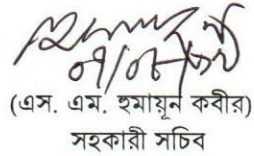 (এস. এম. হুমায়ূন কবীর)
সহকারী সচিব